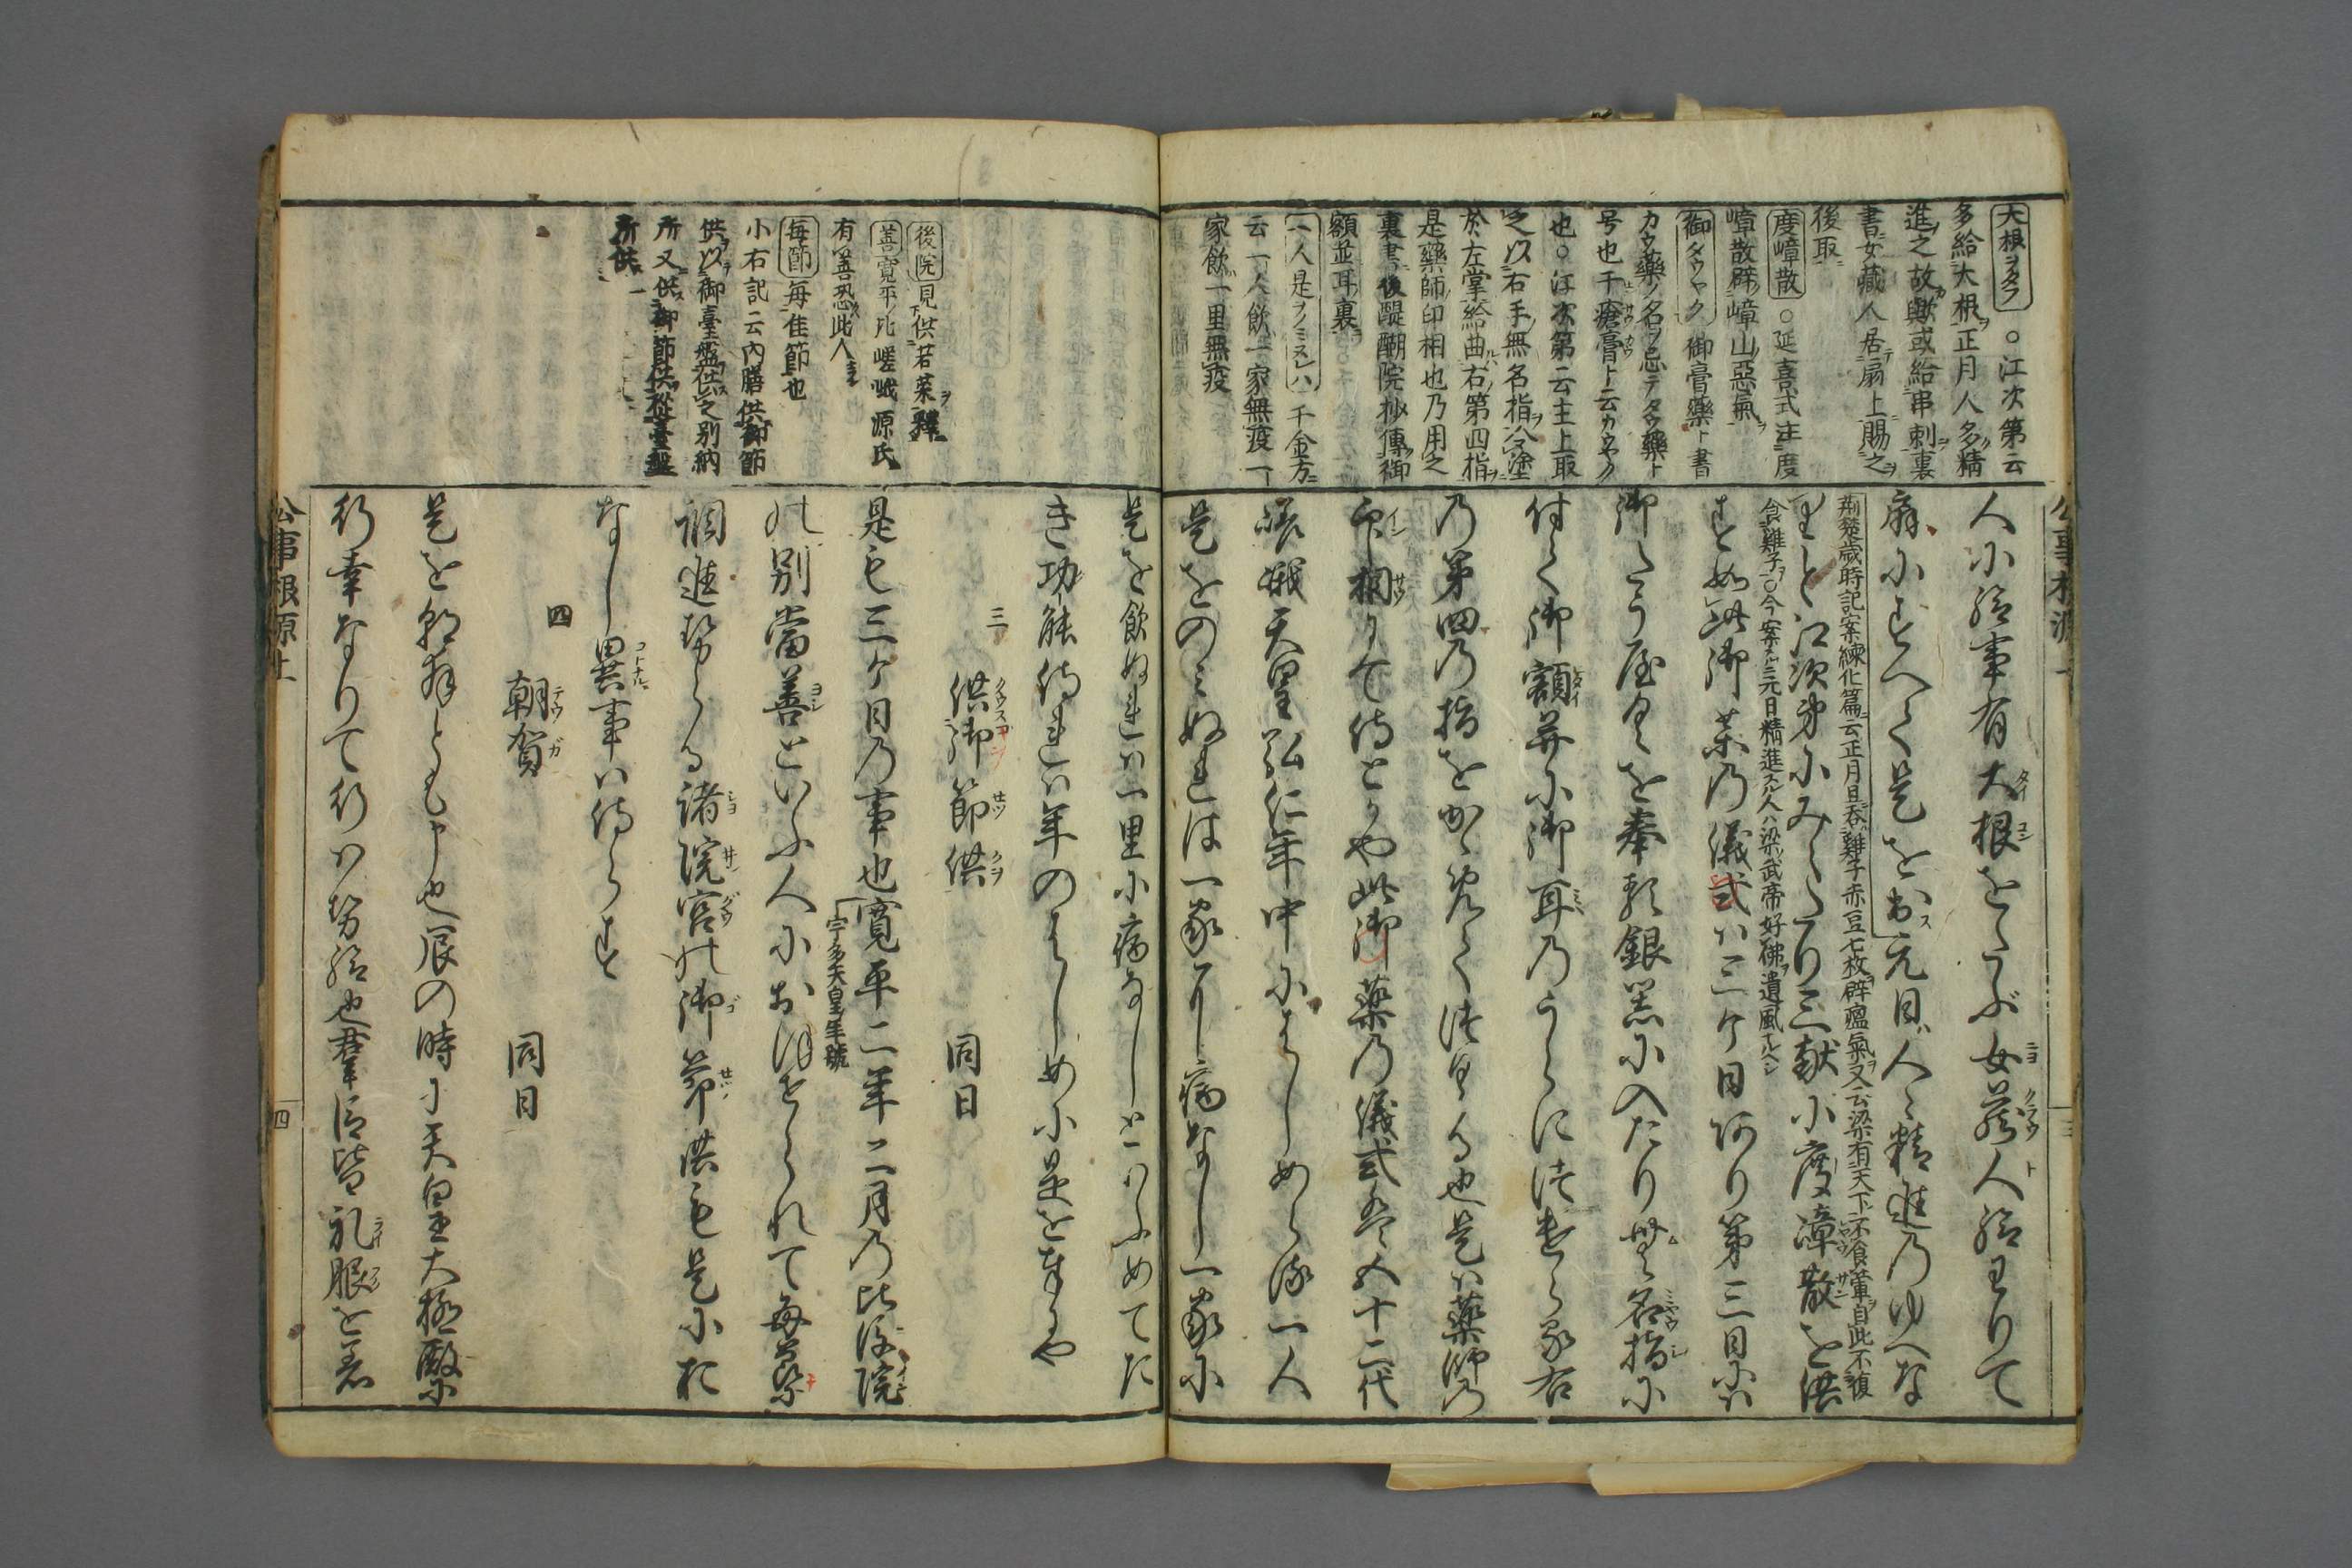 大根ヲタブ○江次第云
多給大根正月人多精
進之故歟或給串刺裏
書女藏人居扇上賜之
後取
度嶂散○延喜式注度
嶂散辟嶂山惡氣
御タウヤク御膏藥ト書
カウ藥ノ名ヲ忌テタウ藥ト
号也千瘡膏ト云カウヤク
也○江次第云主上取
之以右手無名指冷塗
於左掌給曲右第四指
是藥師印相也乃用之
裏書後醍醐院抄傳御
額並耳裏
一人是ヲノミヌレハ千金方
云一人飲一家無疫一
家飲一里無疫
人小給事有大根をたぶ女蔵人給りて
扇にすへて是をおす元日人〻精進のゆへな
荊楚歳時記案練化篇云正月旦呑雞子赤豆七枚辟瘟氣又云梁有天下不食葷自此不復
食雞子○今案スルニ元日精進スル人ハ梁武帝好佛遺風ナルヘシ
りと江次第にみえたり三献に度嶂散を供
すと如此御薬の儀式は三ケ日あり第三日には
御たうやくを奉る銀器に入たり無名指に
付て御額并に御耳のうらに付させ給右
の第四の指をかゝめて付る也是は薬師の
印相にて侍とかや此御薬の儀式五十二代
嵯峨天皇弘仁年中にはしめらる一人
是をのみぬれは一家に病なし一家に
是を飲ぬれは一里に病なしといふめてた
き功能侍れは年のはしめに是を奉るや
三 供御節供 同日
是も三ケ日の事也寛平二年二月の比後院
宇多天皇年號
の別當善といふ人におほせられて毎節
調進せらる諸院宮の御節供も是にお
なし異事は侍らす
四 朝賀 同日
是を朝拜とも申也辰の時に天皇大極殿に
行幸なりて行はせ給也羣臣皆礼服を着
後院見供若菜釋
善寛平ノ比嵯峨源氏
有善恐此人
毎節毎佳節也
小右記云内膳供御節
供以御臺盤供之別納
所又供御節供從臺盤
所供
公事根源上
四